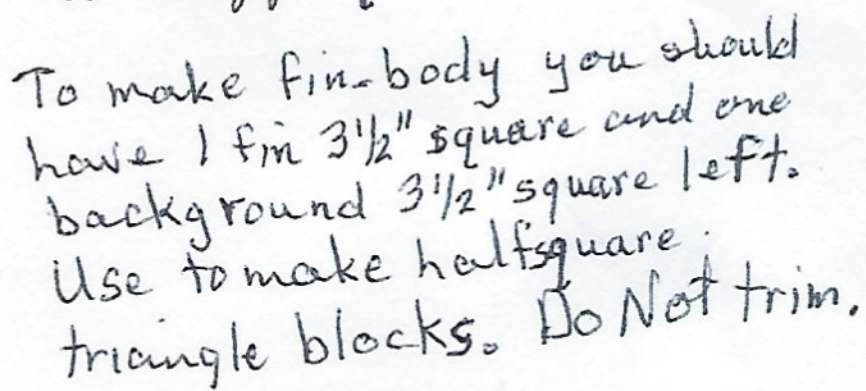 To make fin-body you should
have 1 fin 3 1/2" square and one
background 3 1/2" square left.
Use to make halfsquare
triangle blocks. Do Not trim.